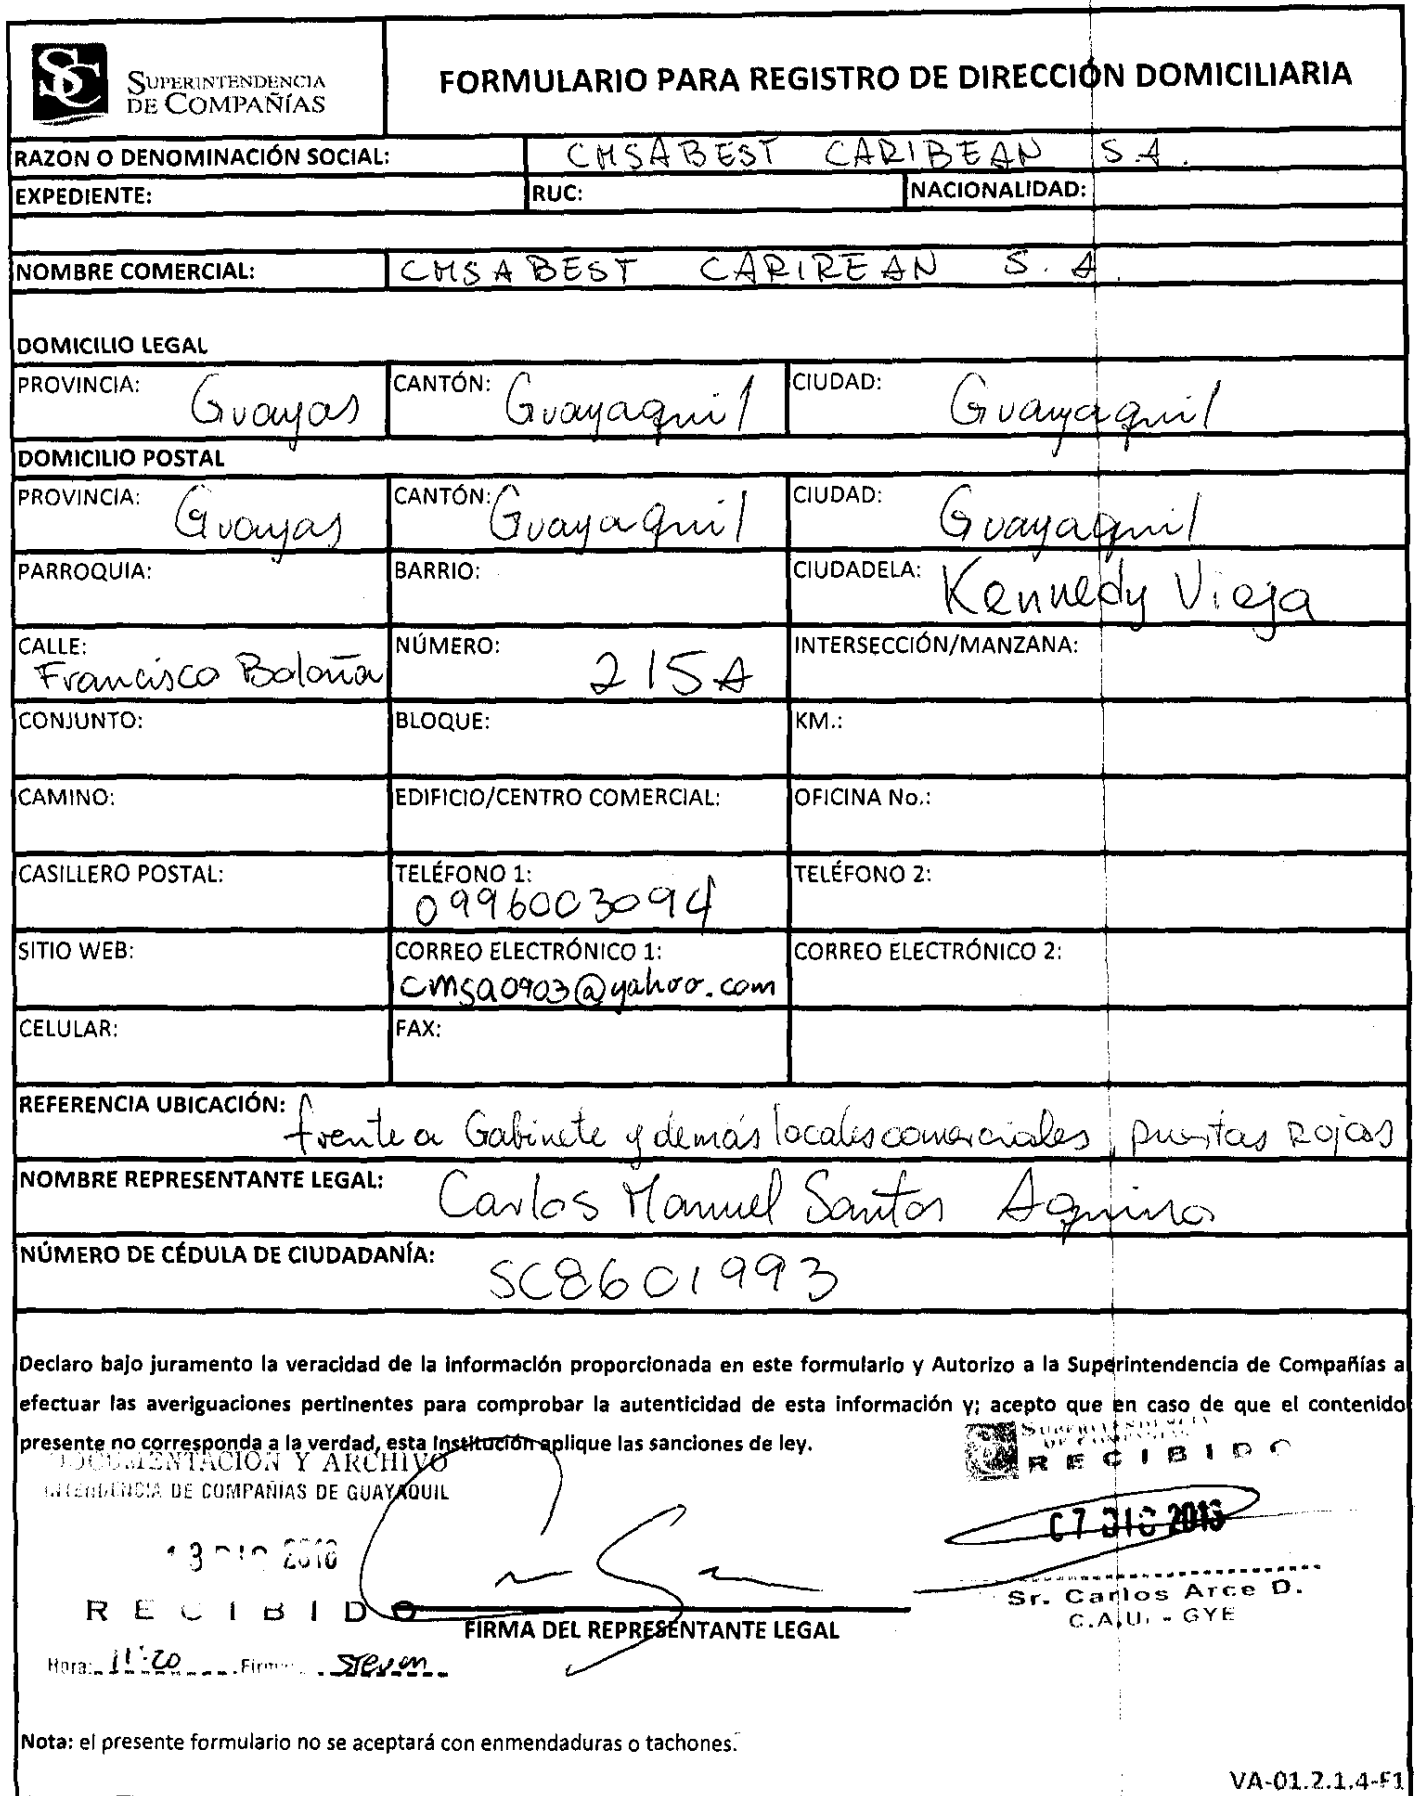 SUPERINTENDENCIA
DE COMPAÑÍAS
FORMULARIO PARA REGISTRO DE DIRECCIÓN DOMICILIARIA
RAZON O DENOMINACIÓN SOCIAL: CMSABEST CARIBEAN S.A.
EXPEDIENTE: RUC: NACIONALIDAD:
NOMBRE COMERCIAL: CMSABEST CARIREAN S.A.
DOMICILIO LEGAL
PROVINCIA: Guayas CANTÓN: Guayaquil CIUDAD: Guayaquil
DOMICILIO POSTAL
PROVINCIA: Guayas CANTÓN: Guayaquil CIUDAD: Guayaquil
PARROQUIA: BARRIO: CIUDADELA: Kennedy Vieja
CALLE: NÚMERO: 215A INTERSECCIÓN/MANZANA:
Francisco Boloña
CONJUNTO: BLOQUE: KM.:
CAMINO: EDIFICIO/CENTRO COMERCIAL: OFICINA No.:
CASILLERO POSTAL: TELÉFONO 1: TELÉFONO 2:
0996003094
SITIO WEB: CORREO ELECTRÓNICO 1: CORREO ELECTRÓNICO 2:
cmsa0903@yahoo.com
CELULAR: FAX:
REFERENCIA UBICACIÓN: frente a Gabinete y demás locales comerciales, puertas Rojas
NOMBRE REPRESENTANTE LEGAL: Carlos Manuel Santos Aquino
NÚMERO DE CÉDULA DE CIUDADANÍA: SC8601993
Declaro bajo juramento la veracidad de la información proporcionada en este formulario y Autorizo a la Superintendencia de Compañías a
efectuar las averiguaciones pertinentes para comprobar la autenticidad de esta información y; acepto que en caso de que el contenido
presente no corresponda a la verdad, esta Institución aplique las sanciones de ley.
DOCUMENTACIÓN Y ARCHIVO
INTENDENCIA DE COMPAÑIAS DE GUAYAQUIL
SUPERINTENDENCIA
DE COMPAÑIAS
RECIBIDO
07 DIC 2016
13 DIC 2016
Sr. Carlos Arce D.
C.A.U. - GYE
RECIBIDO
FIRMA DEL REPRESENTANTE LEGAL
Hora: 11:20 Firma: Steven
Nota: el presente formulario no se aceptará con enmendaduras o tachones.
VA-01.2.1.4-F1